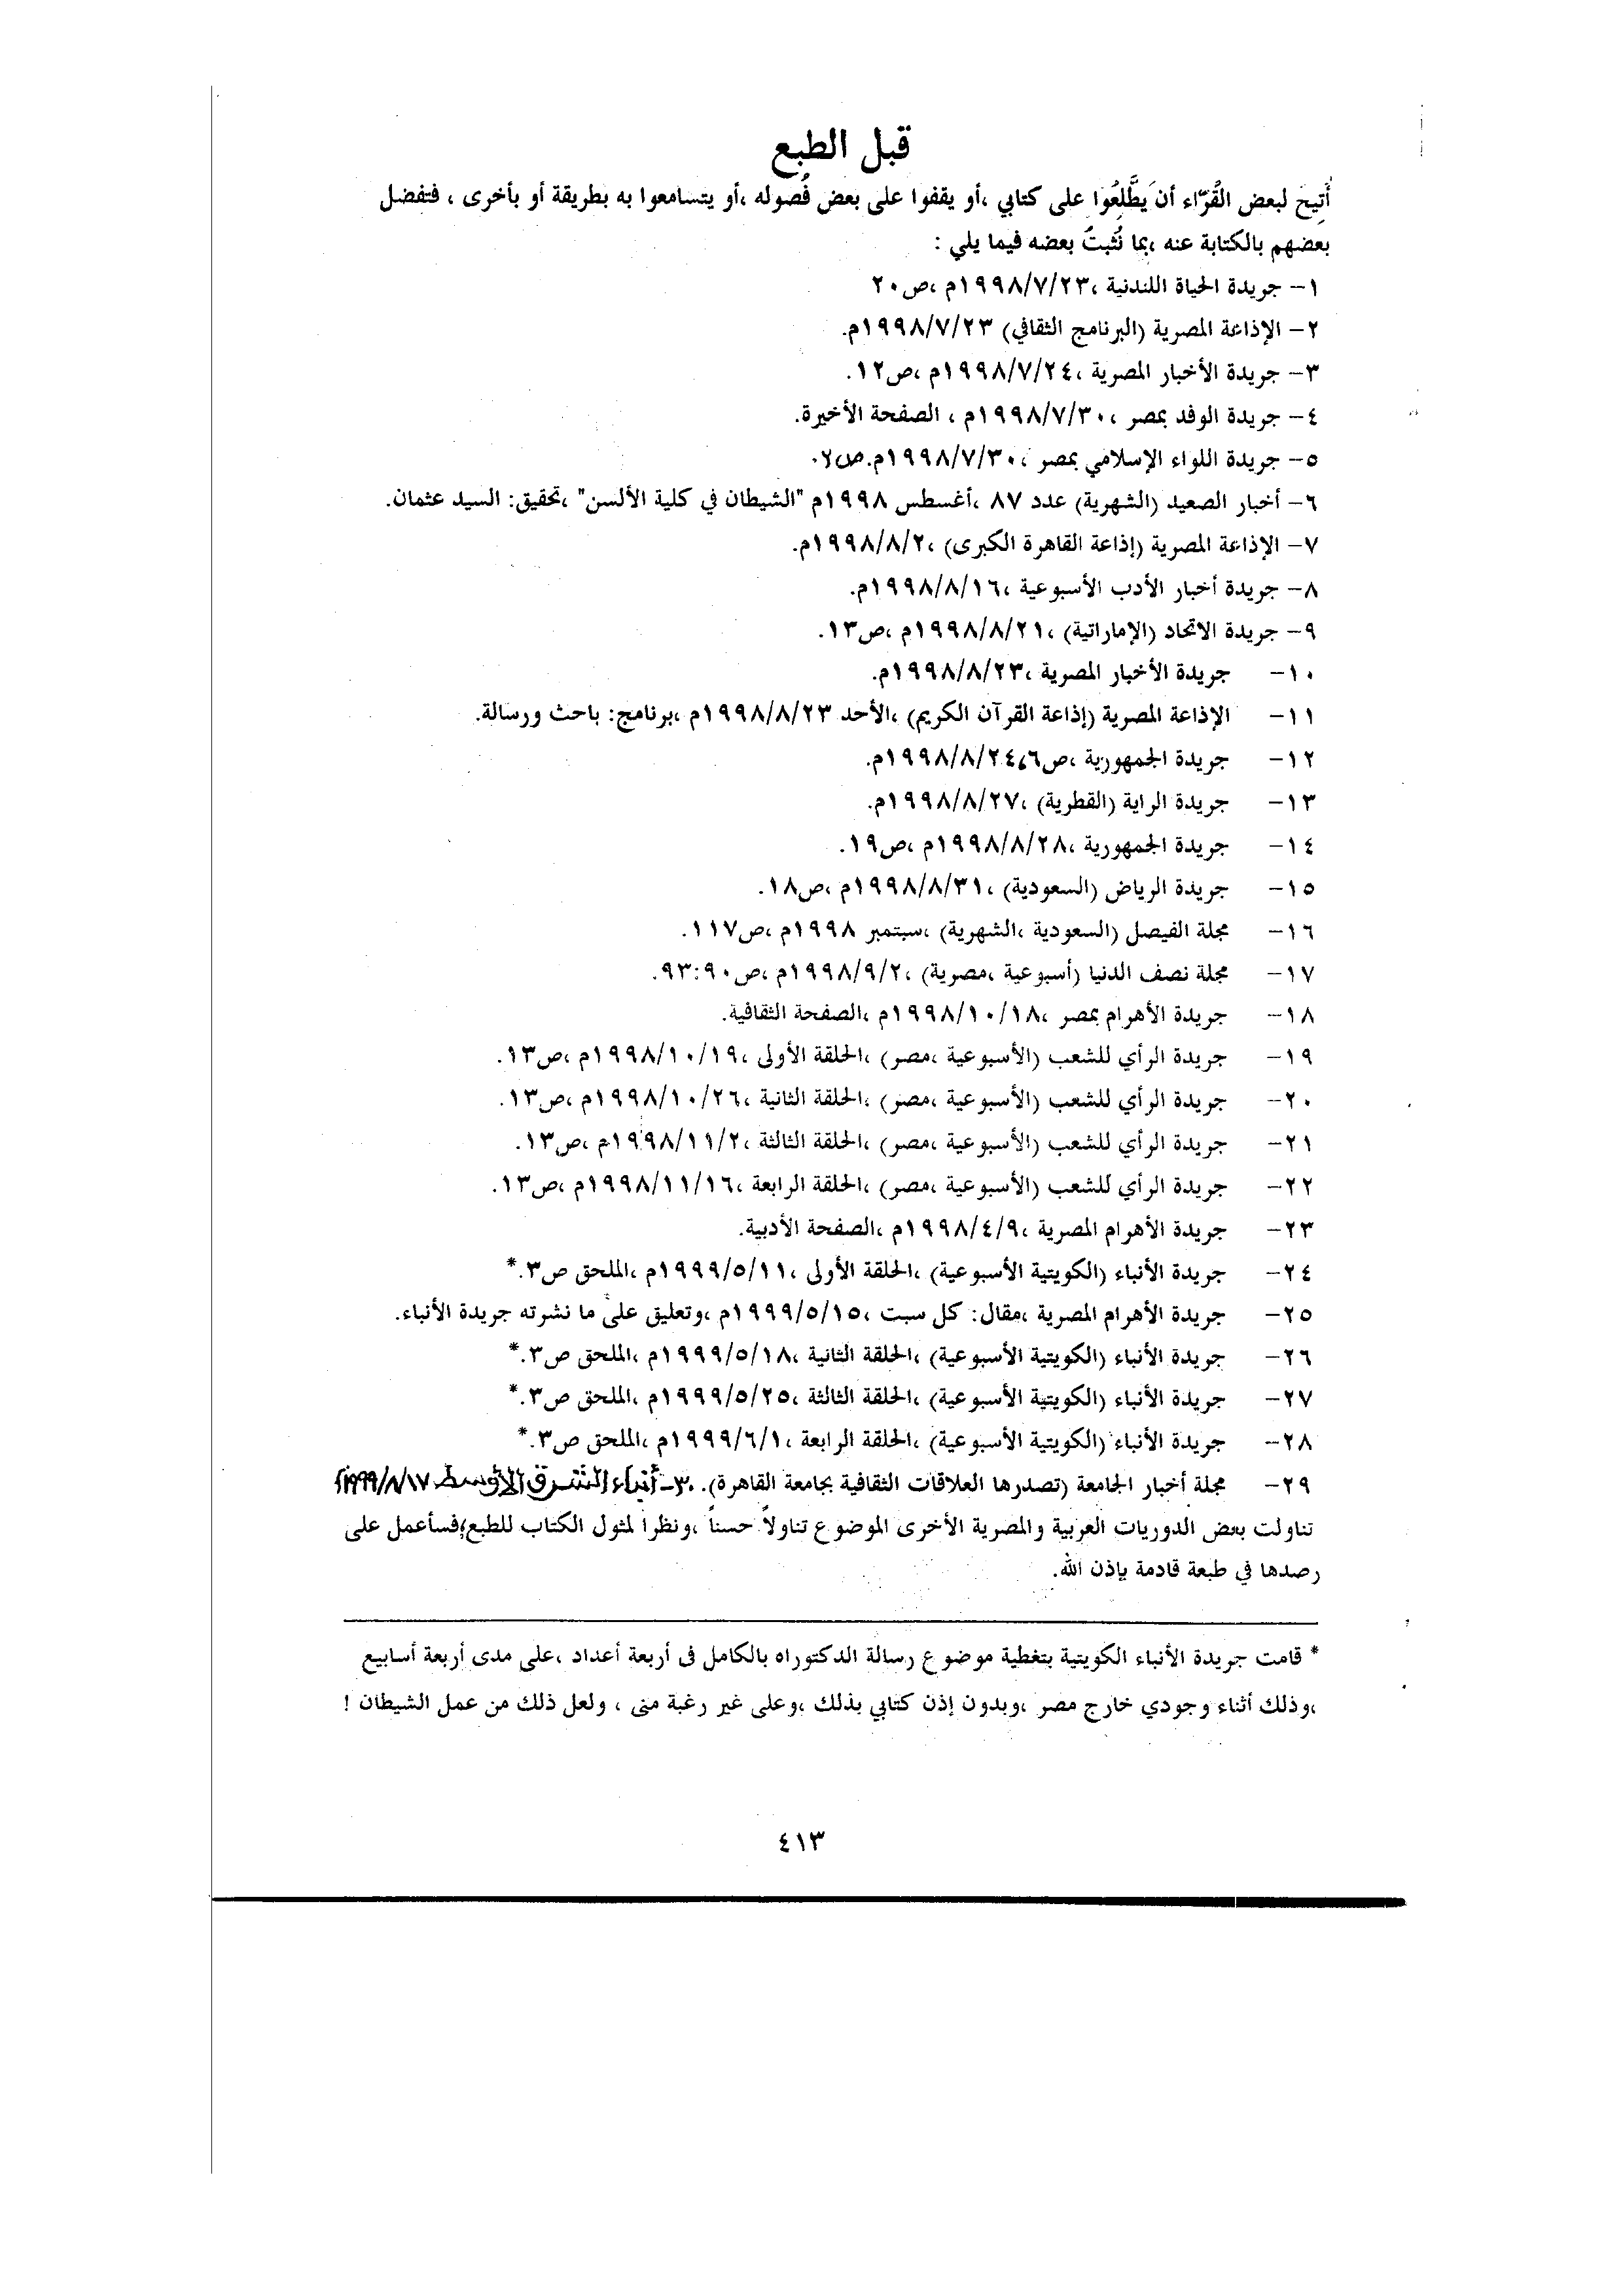 قبل الطبع
أُتِيحَ لبعض القُرّاء أن يَطَّلِعُوا على كتابي ،أو يقفوا على بعض فُصوله ،أو يتسامعوا به بطريقة أو بأخرى ، فتفضل
بعضهم بالكتابة عنه ،بما نُثبتُ بعضه فيما يلي :
١- جريدة الحياة اللندنية ،١٩٩٨/٧/٢٣م ،ص٢٠
٢- الإذاعة المصرية (البرنامج الثقافي) ١٩٩٨/٧/٢٣م.
٣- جريدة الأخبار المصرية ،١٩٩٨/٧/٢٤م ،ص١٢.
٤- جريدة الوفد بمصر ،١٩٩٨/٧/٣٠م ، الصفحة الأخيرة.
٥- جريدة اللواء الإسلامي بمصر ،١٩٩٨/٧/٣٠م.ص٧.
٦- أخبار الصعيد (الشهرية) عدد ٨٧ ،أغسطس ١٩٩٨م "الشيطان في كلية الألسن" ،تحقيق: السيد عثمان.
٧- الإذاعة المصرية (إذاعة القاهرة الكبرى) ،١٩٩٨/٨/٢م.
٨- جريدة أخبار الأدب الأسبوعية ،١٩٩٨/٨/١٦م.
٩- جريدة الاتحاد (الإماراتية) ،١٩٩٨/٨/٢١م ،ص١٣.
١٠- جريدة الأخبار المصرية ،١٩٩٨/٨/٢٣م.
١١- الإذاعة المصرية (إذاعة القرآن الكريم) ،الأحد ١٩٩٨/٨/٢٣م ،برنامج: باحث ورسالة.
١٢- جريدة الجمهورية ،ص٦،١٩٩٨/٨/٢٤م.
١٣- جريدة الراية (القطرية) ،١٩٩٨/٨/٢٧م.
١٤- جريدة الجمهورية ،١٩٩٨/٨/٢٨م ،ص١٩.
١٥- جريدة الرياض (السعودية) ،١٩٩٨/٨/٣١م ،ص١٨.
١٦- مجلة الفيصل (السعودية ،الشهرية) ،سبتمبر ١٩٩٨م ،ص١١٧.
١٧- مجلة نصف الدنيا (أسبوعية ،مصرية) ،١٩٩٨/٩/٢م ،ص٩٣:٩٠.
١٨- جريدة الأهرام بمصر ،١٩٩٨/١٠/١٨م ،الصفحة الثقافية.
١٩- جريدة الرأي للشعب (الأسبوعية ،مصر) ،الحلقة الأولى ،١٩٩٨/١٠/١٩م ،ص١٣.
٢٠- جريدة الرأي للشعب (الأسبوعية ،مصر) ،الحلقة الثانية ،١٩٩٨/١٠/٢٦م ،ص١٣.
٢١- جريدة الرأي للشعب (الأسبوعية ،مصر) ،الحلقة الثالثة ،١٩٩٨/١١/٢م ،ص١٣.
٢٢- جريدة الرأي للشعب (الأسبوعية ،مصر) ،الحلقة الرابعة ،١٩٩٨/١١/١٦م ،ص١٣.
٢٣- جريدة الأهرام المصرية ،١٩٩٨/٤/٩م ،الصفحة الأدبية.
٢٤- جريدة الأنباء (الكويتية الأسبوعية) ،الحلقة الأولى ،١٩٩٩/٥/١١م ،الملحق ص٣.*
٢٥- جريدة الأهرام المصرية ،مقال: كل سبت ،١٩٩٩/٥/١٥م ،وتعليق على ما نشرته جريدة الأنباء.
٢٦- جريدة الأنباء (الكويتية الأسبوعية) ،الحلقة الثانية ،١٩٩٩/٥/١٨م ،الملحق ص٣.*
٢٧- جريدة الأنباء (الكويتية الأسبوعية) ،الحلقة الثالثة ،١٩٩٩/٥/٢٥م ،الملحق ص٣.*
٢٨- جريدة الأنباء (الكويتية الأسبوعية) ،الحلقة الرابعة ،١٩٩٩/٦/١م ،الملحق ص٣.*
٢٩- مجلة أخبار الجامعة (تصدرها العلاقات الثقافية بجامعة القاهرة). ٣٠- أنباء الشرق الأوسط ١٩٩٩/٨/١٧م
تناولت بعض الدوريات العربية والمصرية الأخرى الموضوع تناولاً حسناً ،ونظرا لمثول الكتاب للطبع؛فسأعمل على
رصدها في طبعة قادمة بإذن الله.
* قامت جريدة الأنباء الكويتية بتغطية موضوع رسالة الدكتوراه بالكامل فى أربعة أعداد ،على مدى أربعة أسابيع
،وذلك أثناء وجودي خارج مصر ،وبدون إذن كتابي بذلك ،وعلى غير رغبة منى ، ولعل ذلك من عمل الشيطان !
٤١٣